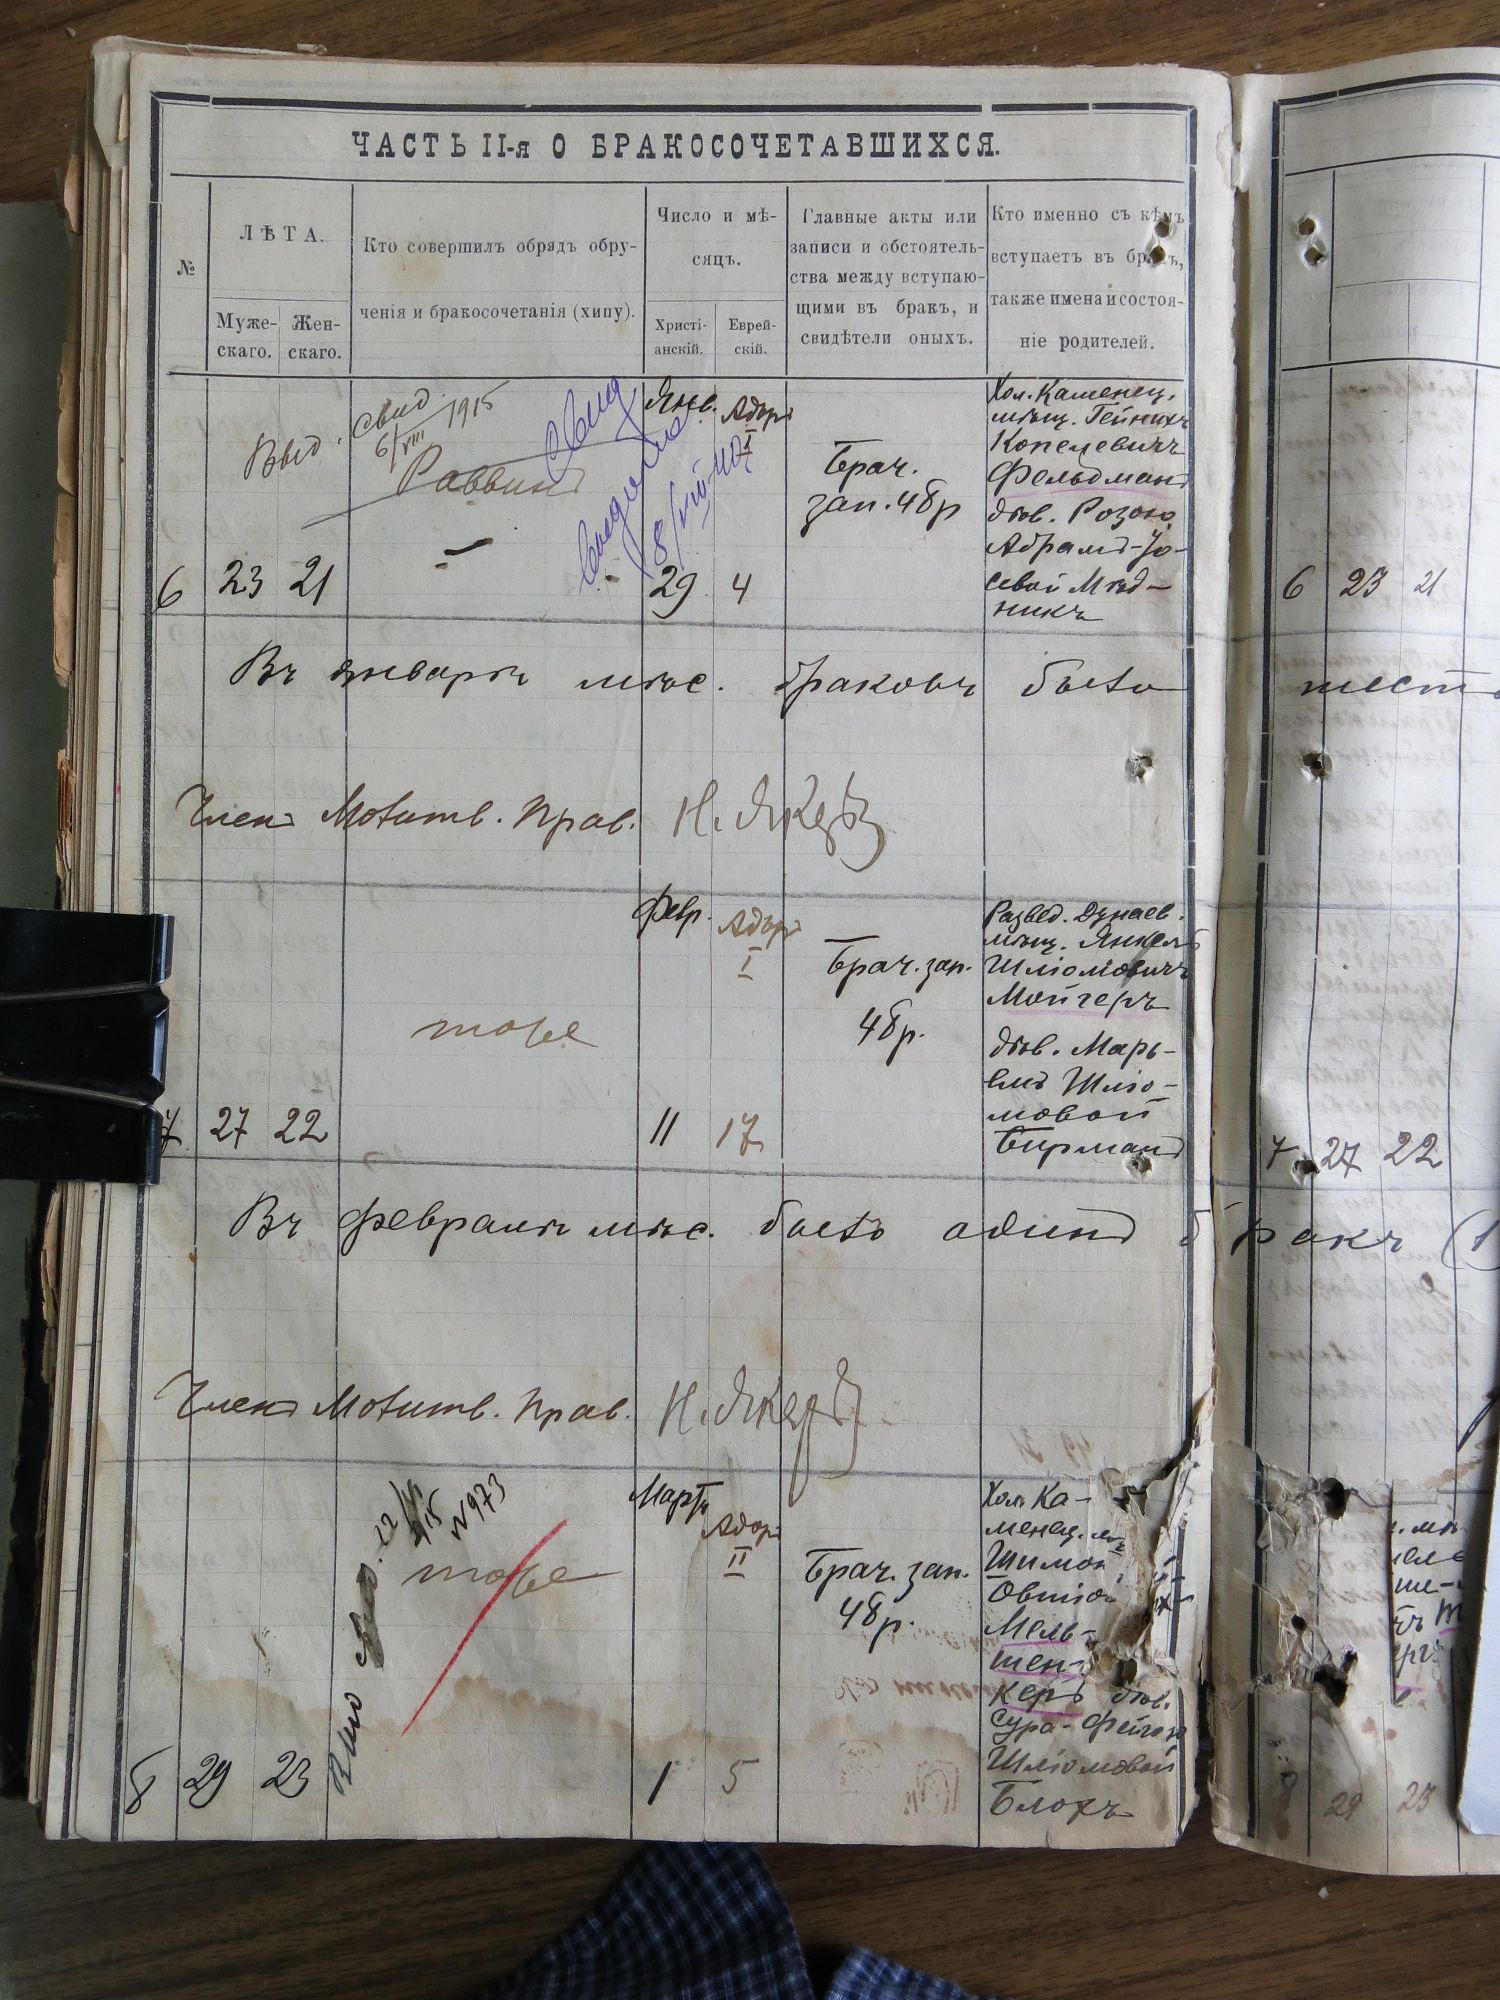 ЧАСТЬ II-я О БРАКОСОЧЕТАВШИХСЯ.
№
ЛѢТА.
Муже-
скаго.
Жен-
скаго.
Кто совершилъ обрядъ обру-
ченія и бракосочетанія (хипу).
Число и мѣ-
сяцъ.
Христі-
анскій.
Еврей-
скій.
Главные акты или
записи и обстоятель-
ства между вступаю-
щими въ бракъ, и
свидѣтели оныхъ.
Кто именно съ кѣмъ
вступаетъ въ бракъ,
также имена и состоя-
ніе родителей.
Выд. свид.
6/VIII 1915
Раввинъ
6
23
21
Янв.
29
Адаръ
I
4
Брач.
зап. 48р
Хол. Каменец.
мѣщ. Гейнихъ
Копелевичъ
Фельдманъ
дѣв. Розою
Абрамъ-Іо-
севой Мѣд-
никъ
6 23 21
Въ январѣ мѣс. браковъ было шесть
Членъ Молитв. Прав. Н. Якеръ
тоже
7
27
22
Февр.
11
Адаръ
I
17
Брач. зап.
48р.
Развед. Дунаев.
мѣщ. Янкель
Шліомовичъ
Мойгеръ
дѣв. Марь-
емъ Шліо-
мовой
Бирманъ
7 27 22
Въ февралѣ мѣс. былъ одинъ бракъ (1
Членъ Молитв. Прав. Н. Якеръ
N 973
тоже
8
29
23
Мартъ
1
Адаръ
II
5
Брач. зап.
48р.
Хол. Ка-
менец.
Шимон
Овшіо
Мель-
шен-
керъ дѣв.
Сура-Фейгою
Шліомовой
Блохъ
29 23